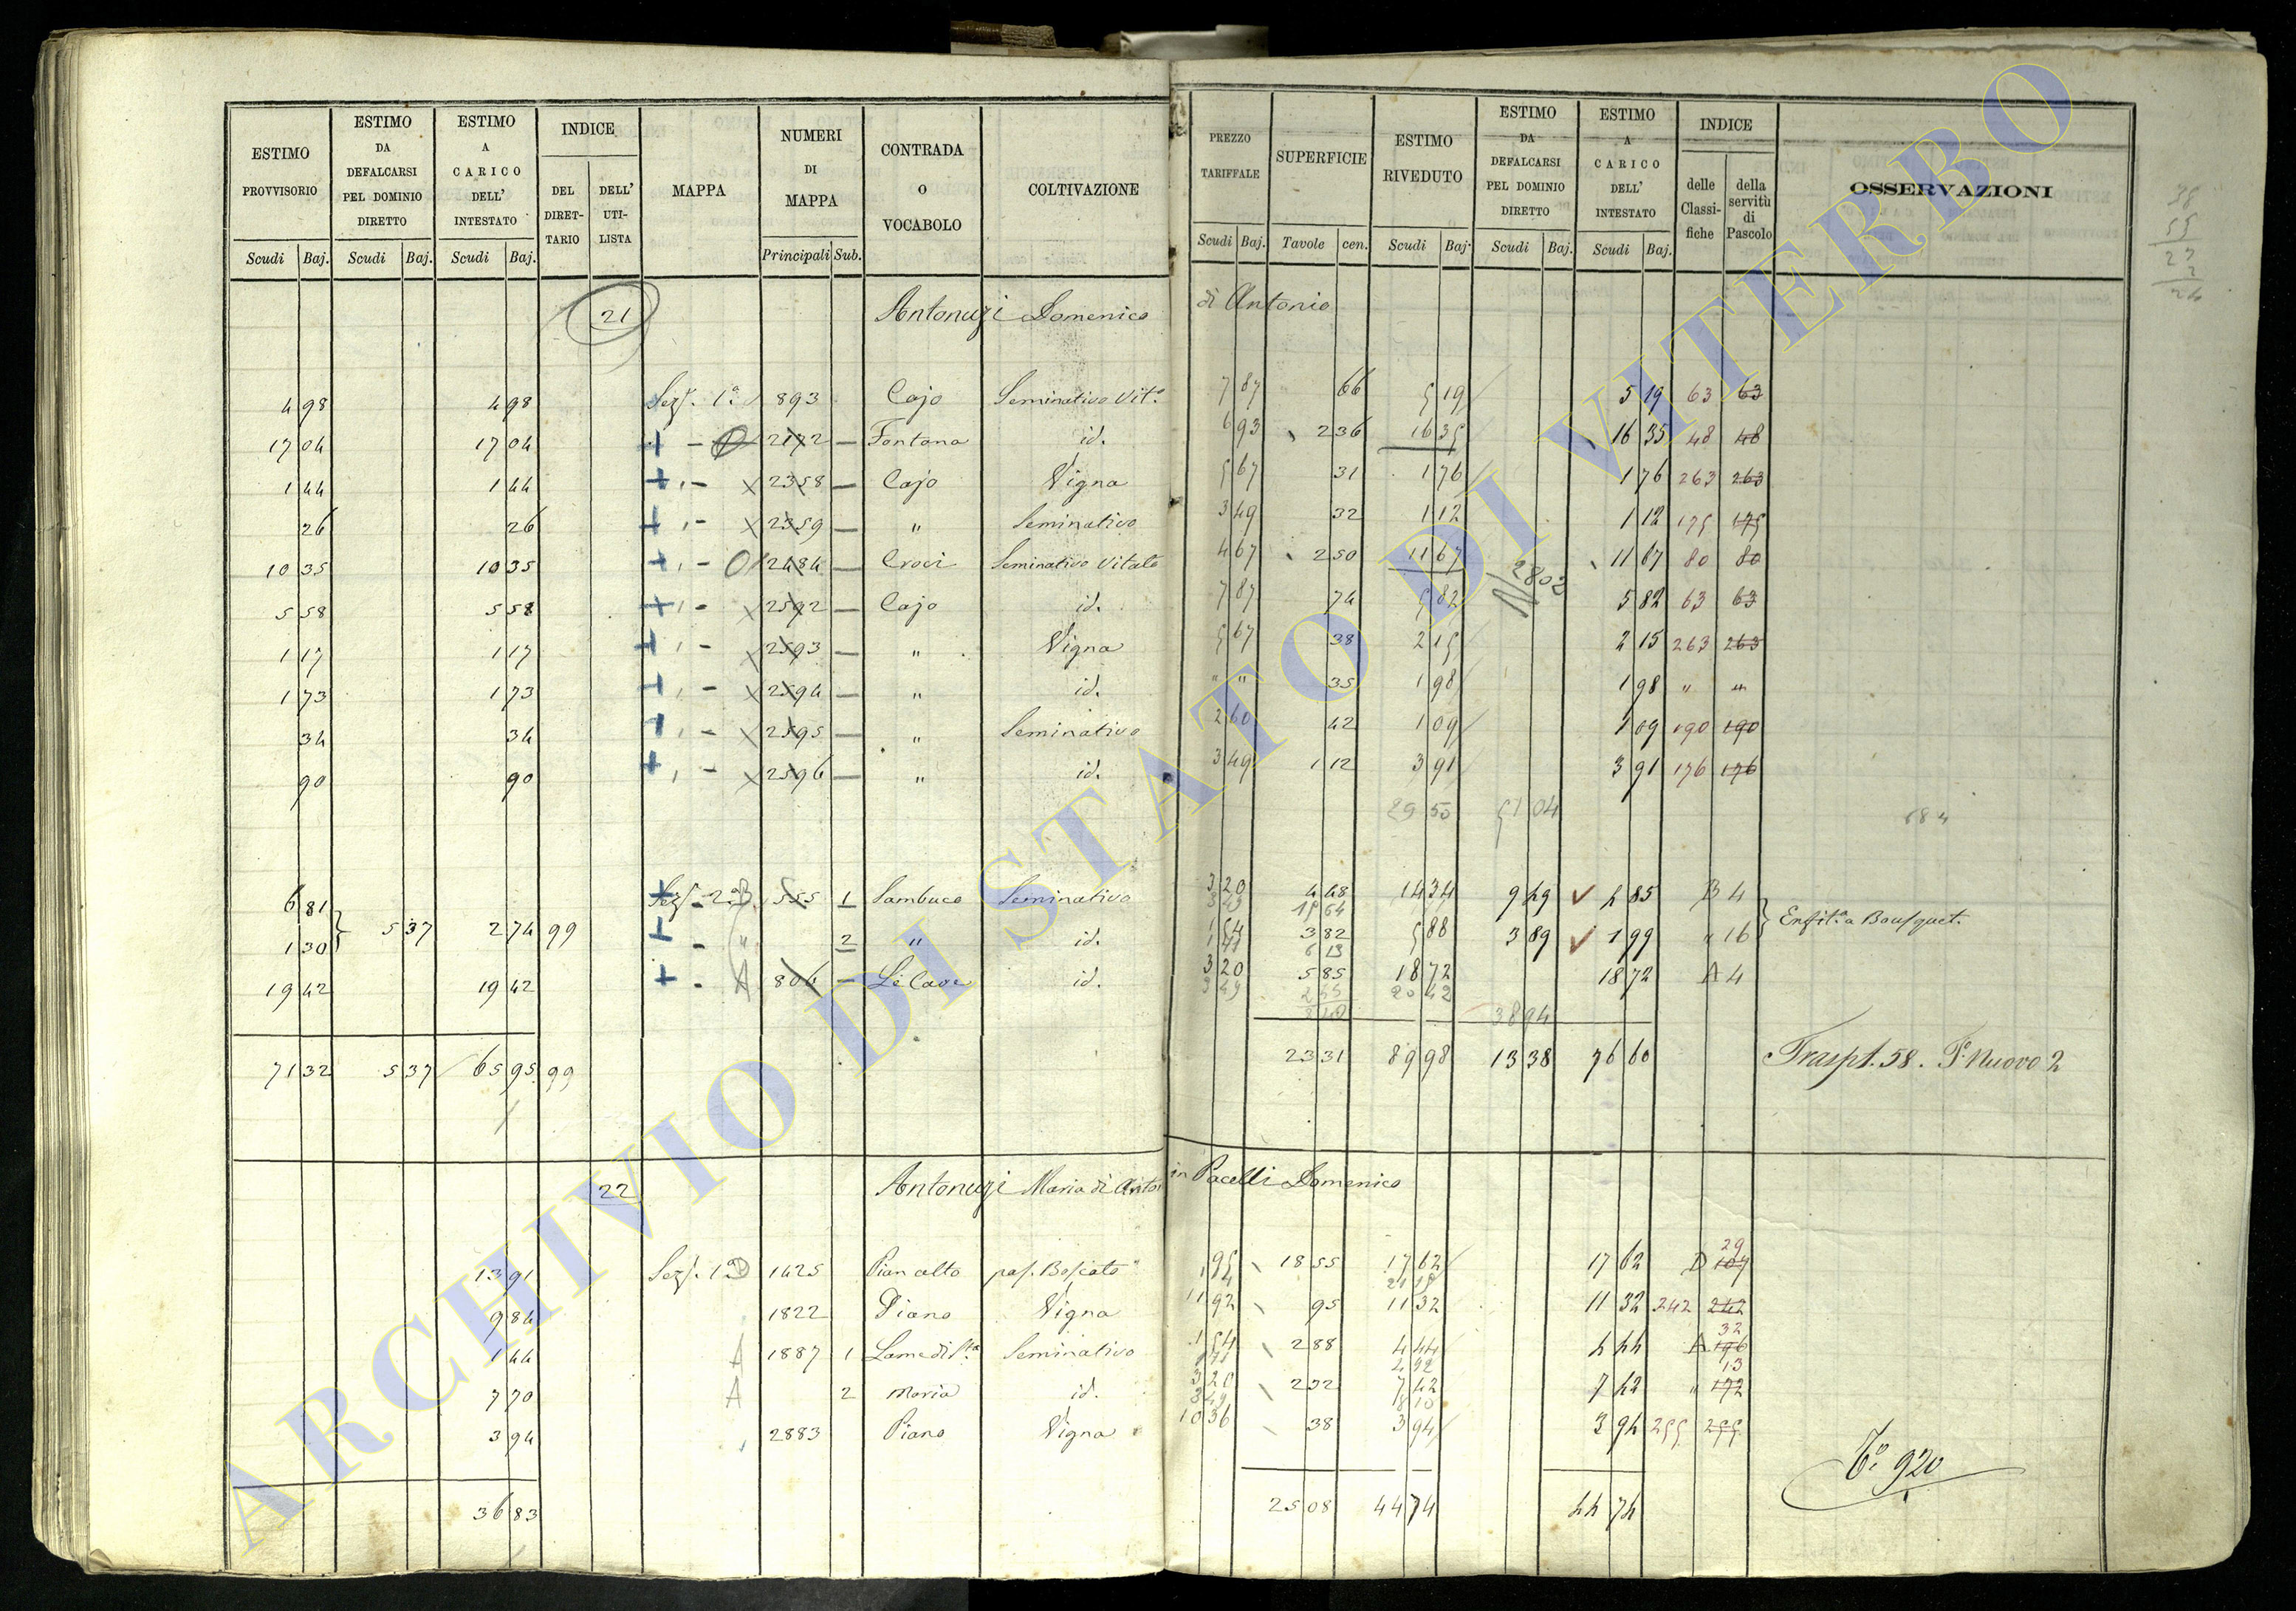 ESTIMO PROVVISORIO | ESTIMO DA DEFALCARSI PEL DOMINIO DIRETTO | ESTIMO A CARICO DELL' INTESTATO | INDICE DEL DIRETTARIO | DELL' UTILISTA | MAPPA | NUMERI DI MAPPA | CONTRADA O VOCABOLO | COLTIVAZIONE | PREZZO TARIFFALE | SUPERFICIE | ESTIMO RIVEDUTO | ESTIMO DA DEFALCARSI PEL DOMINIO DIRETTO | ESTIMO A CARICO DELL' INTESTATO | INDICE delle Classifiche | della servitù di Pascolo | OSSERVAZIONI
Scudi Baj. | Scudi Baj. | Scudi Baj. | Principali Sub. | Scudi Baj. | Tavole cen. | Scudi Baj. | Scudi Baj. | Scudi Baj.
38
55
21 Antonuzi Domenico di Antonio
4 98 | 4 98 | Sez. 1ª | 893 | Cajo | Seminativo Vit.º | 7 87 | 66 | 5 19 | 5 19 | 63 | 63
17 04 | 17 04 | 2172 | Fontana | id. | 6 93 | 2 36 | 16 35 | 16 35 | 48 | 48
1 44 | 1 44 | 2358 | Cajo | Vigna | 5 67 | 31 | 1 76 | 1 76 | 263 | 263
26 | 26 | 2359 | " | Seminativo | 3 49 | 32 | 1 12 | 1 12 | 175 | 175
10 35 | 10 35 | 2484 | Croci | Seminativo Vitato | 4 67 | 2 50 | 11 67 | 11 67 | 80 | 80
N 2802
5 58 | 5 58 | 2592 | Cajo | id. | 7 87 | 74 | 5 82 | 5 82 | 63 | 63
1 17 | 1 17 | 2593 | " | Vigna | 5 67 | 38 | 2 15 | 2 15 | 263 | 263
1 73 | 1 73 | 2594 | " | id. | " " | 35 | 1 98 | 1 98 | " | "
34 | 34 | 2595 | " | Seminativo | 2 60 | 42 | 1 09 | 1 09 | 190 | 190
90 | 90 | 2596 | " | id. | 3 49 | 1 12 | 3 91 | 3 91 | 176 | 176
29 50 | 51 04
6 81 | 5 37 | 2 74 | 99 | Sez. 2ª | 555 | 1 | Sambuco | Seminativo | 3 20 | 4 48 | 14 34 | 9 49 | 4 85 | B 4
3 49 | 15 64
1 30 | " | 2 | " | id. | 1 54 | 3 82 | 5 88 | 3 89 | 1 99 | " 16 | Enfit.ª a Bousquet.
19 42 | 19 42 | A | 806 | Le Cave | id. | 3 20 | 5 85 | 18 72 | 18 72 | A 4
3 49 | 2 55 | 20 42
38 94
71 32 | 5 37 | 65 95 | 99 | 23 31 | 89 98 | 13 38 | 76 60 | Traspt. 58. P.º Nuovo 2
22 Antonuzi Maria di Anton in Pacelli Domenico
13 91 | Sez. 1ª D | 1425 | Pian alto | pas. Boscato | 95 | 18 55 | 17 62 | 17 62 | D | 29 | 107
9 84 | 1822 | Piano | Vigna | 11 92 | 95 | 11 32 | 11 32 | 242 | 242
1 44 | A | 1887 | 1 | Lame di S.ta | Seminativo | 1 54 | 2 88 | 4 44 | 4 44 | A | 32 | 196
4 92
7 70 | A | 2 | Maria | id. | 3 20 | 2 32 | 7 42 | 7 42 | " | 13 | 172
3 49 | 8 10
3 94 | 2883 | Piano | Vigna | 10 36 | 38 | 3 94 | 3 94 | 255 | 255
T.º 920
36 83 | 25 08 | 44 74 | 44 74
ARCHIVIO DI STATO DI VITERBO